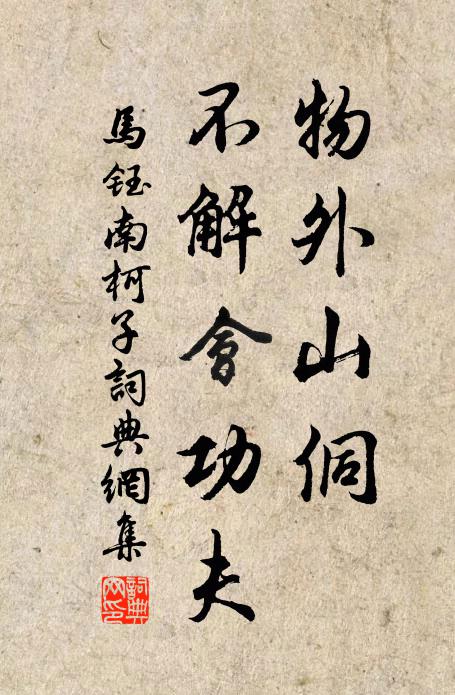 物外山侗
不解會功夫
馬鈺南柯子詞典網集
詞典网印